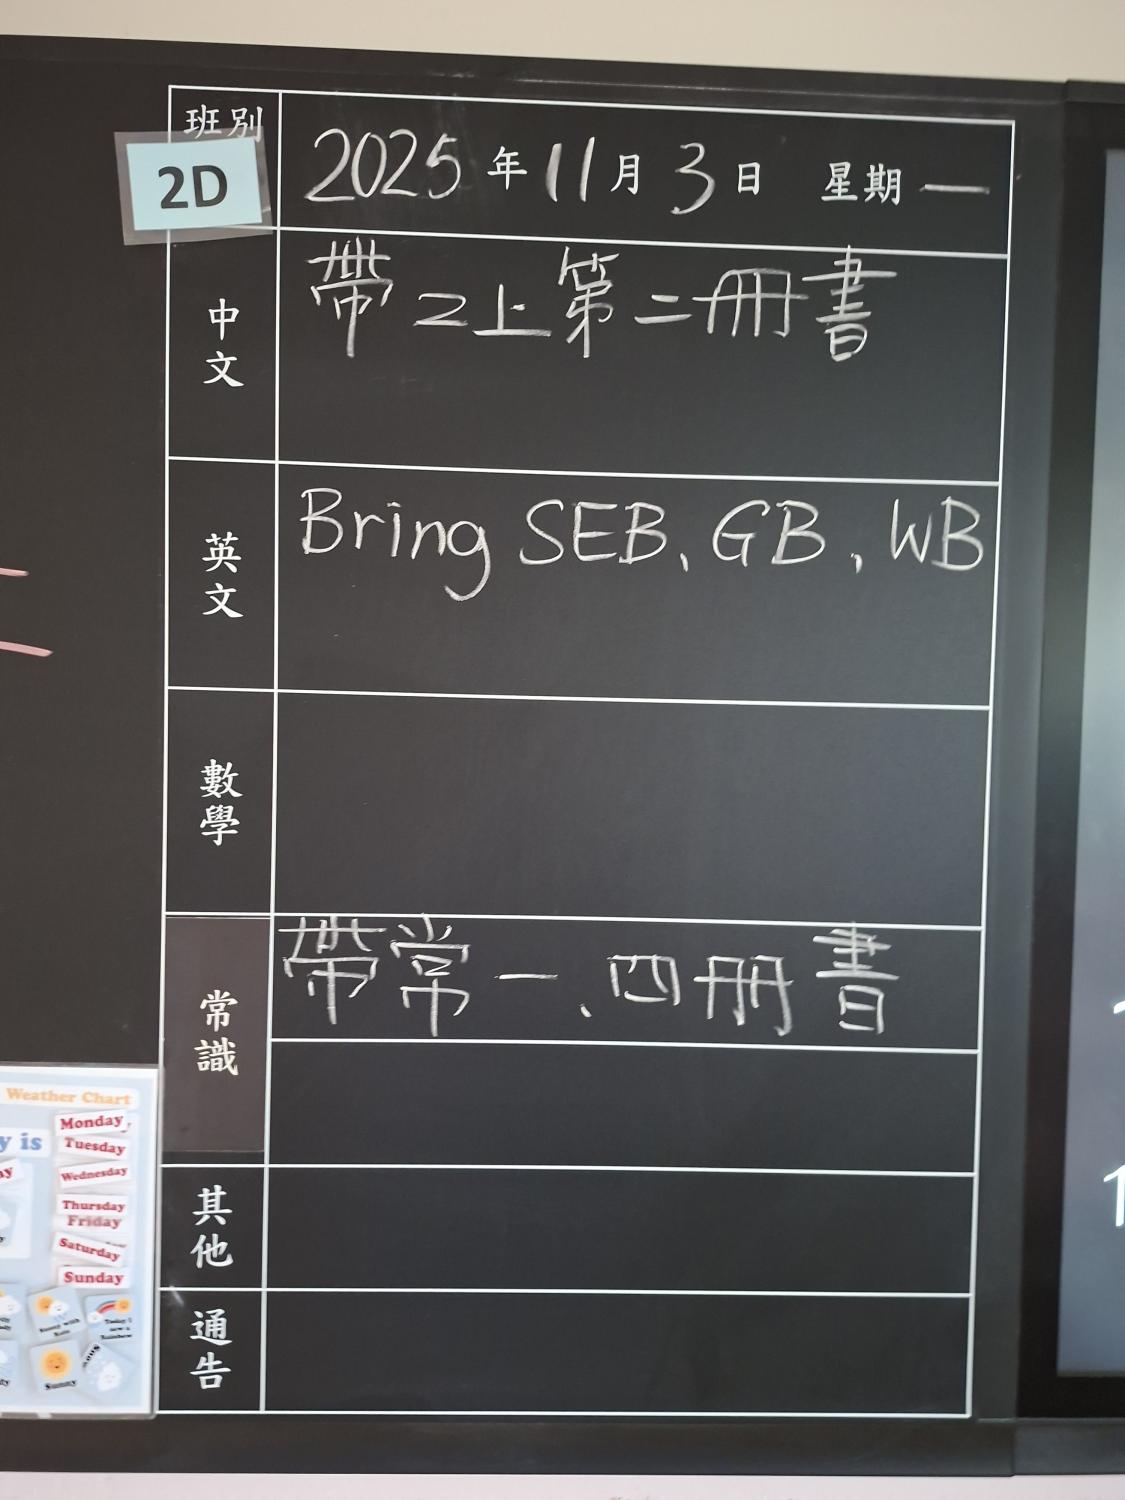 班別
2D
2025年11月3日 星期一
中文
帶二上第二冊書
英文
Bring SEB, GB, WB
數學
常識
帶常一、四冊書
其他
通告
Weather Chart
y is
Monday
Tuesday
Wednesday
Thursday
Friday
Saturday
Sunday
Sunny